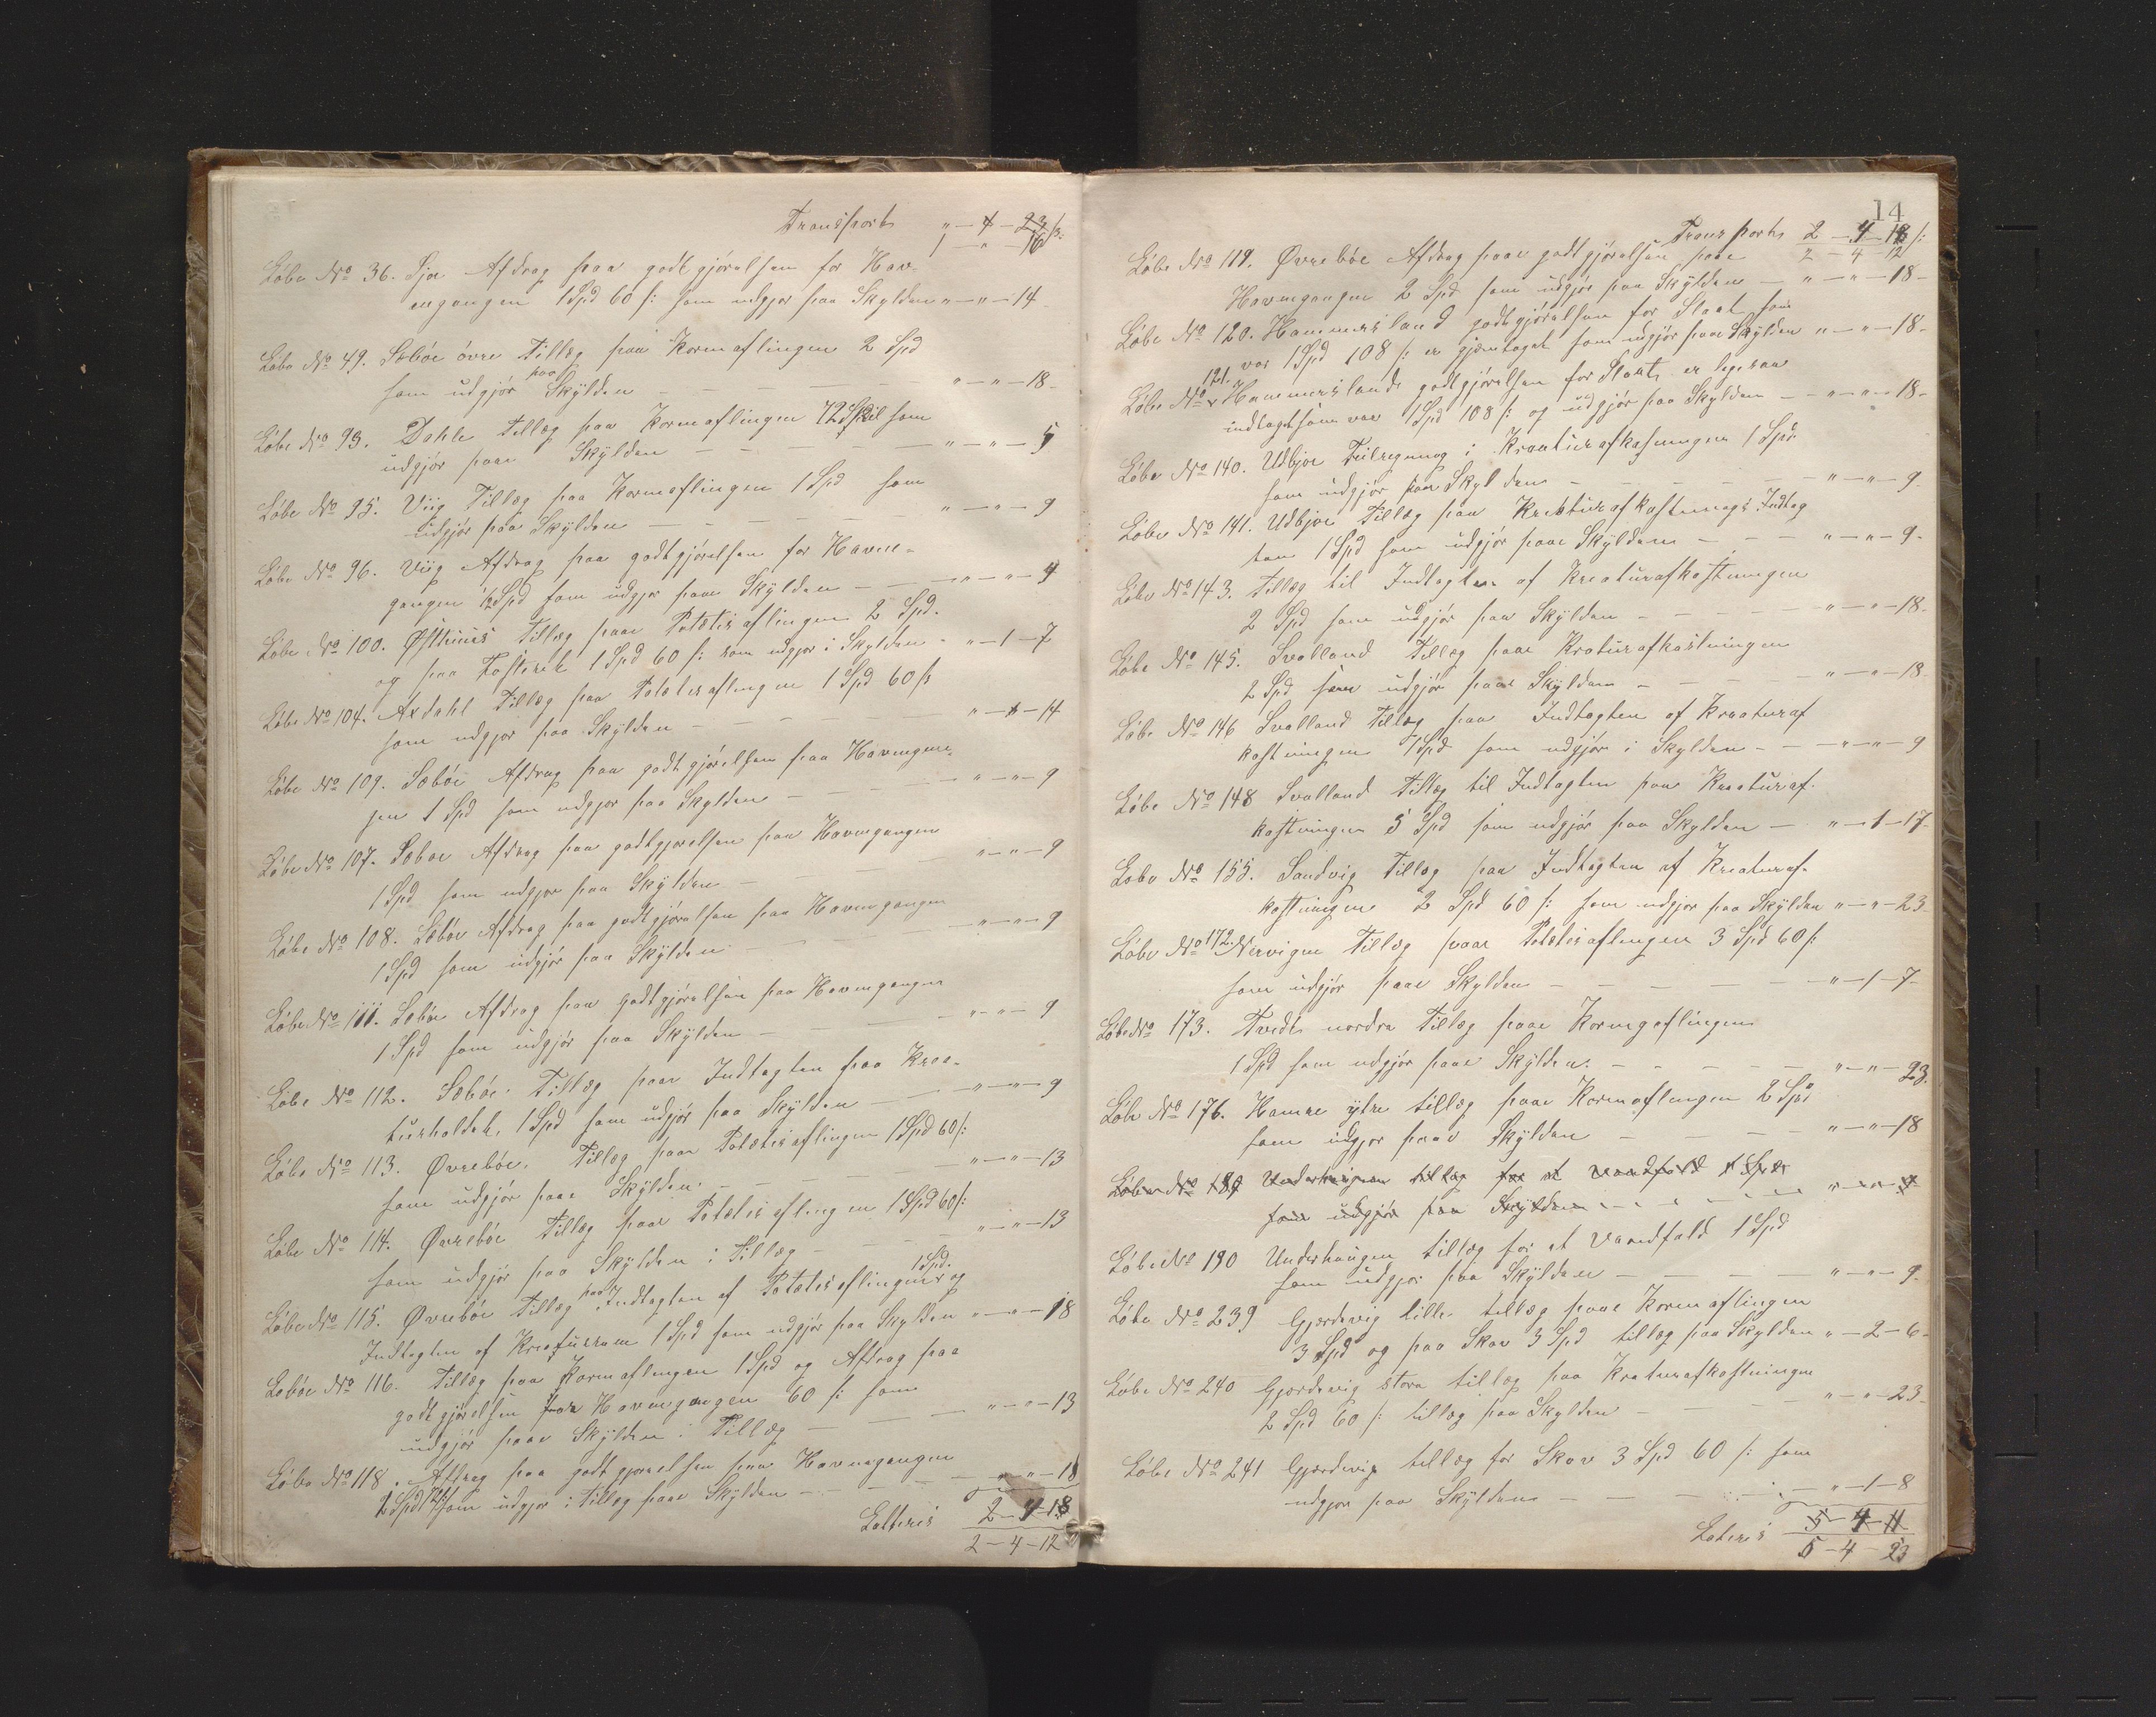 Transport „ – 4 – 23 ſ:
1 – „ – 16
Löbe No 36. Sjoe Afdrag paa godtgjörelsen for Hav-
engangen 1 Spd 60 ſ: som udgjør paa Skylden „ – „ – 14
Löbe No 49. Sæböe övre Tillæg paa Kornaflingen 2 Spd
som udgjör paa Skylden – „ – „ – 18 –
Löbe No 93. Dahle Tillæg paa Kornaflingen 72 Skil som
udgjör paa Skylden – – – „ – „ – 5
Löbe No 95. Viig Tillæg paa Kornaflingen 1 Spd som
udgjör paa Skylden – – – „ – „ – 9
Löbe No 96. Viig Afdrag paa godtgjörelsen for Havne-
gangen ½ Spd som udgjør paa Skylden – „ – „ – 4
Löbe No 100. Østhuus Tillæg paa Potetisaflingen 2 Spd.
og paa 1 Spd 60 ſ: som udgjør i Skylden – „ – 1 – 7
Löbe No 104. Axdahl Tillæg paa Potetisaflingen 1 Spd 60 ſ:
som udgjør paa Skylden – – „ – „ – 14
Löbe No 109. Sæböe Afdrag paa godtgjörelsen paa Havngan-
gen 1 Spd som udgjør paa Skylden – – „ – „ – 9
Löbe No 107. Sæboe Afdrag paa godtgjørelsen paa Havngangen
1 Spd som udgjør paa Skylden – – „ – „ – 9
Löbe No 108. Sæböe Afdrag paa godtgjörelsen paa Havngangen
1 Spd som udgjör paa Skylden – – „ – „ – 9
Löbe No 111. Sæböe Afdrag paa godtgjörelsen paa Havngangen
1 Spd som udgjör paa Skylden – – „ – „ – 9
Löbe No 112. Sæböe. Tillæg paa Indtægten paa Krea-
turholdet, 1 Spd som udgjör paa Skylden – „ – „ – 9
Löbe No 113. Øvreböe. Tillæg paa Potetisaflingen 1 Spd 60 ſ:
som udgjör paa Skylden. – – „ – „ – 13
Löbe No 114. Øvreböe Tillæg paa Potetisaflingen 1 Spd 60 ſ:
som udgjör paa Skylden i Tillæg – „ – „ – 13
Löbe No 115. Øvreböe Tillæg paa Indtægten af Potetisaflingen 1 Spd. og
Indtægten af Kreaturene 1 Spd som udgjör paa Skylden „ – „ – 18
Löböe No 116. Tillæg paa Kornaflingen 1 Spd og Afdrag paa
godtgjörelsen for Havngangen 60 ſ: som
udgjör paa Skylden i Tillæg – „ – „ – 13
Löbe No 118. Afdrag paa godtgjørelsen paa Havnegangen
2 Spd som udgjør i Tillæg paa Skylden – „ – „ – 18
Latteris 2 – 4 – 18
2 – 4 – 12
14
Transport 2 – 4 – 18 ſ:
2 – 4 – 12
Löbe No 119. Øvreböe Afdrag paa godtgjörelsen paa
Havngangen 2 Spd som udgjör paa Skylden – „ – „ – 18 –
Löbe No 120. Hammersland godtgjörelsen for Slaat som
var 1 Spd 108 ſ: er gjentaget som udgjör paa Skylden „ – „ – 18 –
Löbe No 121. Hammerslands godtgjörelsen for Slaat er ligesaa
indtaget som var 1 Spd 108 ſ: og udgjör paa Skylden – „ – „ – 18 –
Löbe No 140. Udbjoe Feilregning i Kreaturafkastningen 1 Spd
som udgjör paa Skylden – – „ – „ – 9
Löbe No 141. Udbjoe Tillæg paa Kreaturafkastnings Indtæg
ten 1 Spd som udgjör paa Skylden – – „ – „ – 9 –
Löbe No 143. Tillæg til Indtægten af Kreaturafkastningen
2 Spd som udgjör paa Skylden – – „ – „ – 18 –
Löbe No 145. Svolland Tillæg paa Kreaturafkastningen
2 Spd som udgjör paa Skylden – – „ – „ – 18
Löbe No 146 Svolland Tillæg paa Indtægten af Kreaturaf
kastningen 1 Spd som udgjör i Skylden – – „ – „ – 9
Löbe No 148 Svolland Tillæg til Indtægten paa Kreaturaf-
kastningen 5 Spd som udgjör paa Skylden – „ – 1 – 17
Löbe No 155. Sandvig Tillæg paa Indtægten af Kreaturaf-
kastningen 2 Spd 60 ſ: som udgjør paa Skylden „ – „ – 23
Löbe No 172. Nervigen Tillæg paa Potetisaflingen 3 Spd 60 ſ:
som udgjör paa Skylden – – „ – 1 – 7
Löbe No 173. Tvedt nordre Tillæg paa Kornaflingen
1 Spd som udgjör paa Skylden. – – „ – „ – 23.
Löbe No 176. Hamre ytre tillæg paa Kornaflingen 2 Spd
som udgjør paa Skylden – – „ – „ – 18
Löbe No 189 Underhaugen tillæg for et vandfald 1 Spd
som udgjör paa Skylden – – „ – „ – 9
Löbe No 190 Underhaugen tillæg for et Vandfald 1 Spd
som udgjør paa Skylden – – „ – „ – 9
Löbe No 239 Gjerdevig lille tillæg paa Kornaflingen
3 Spd og paa Skov 3 Spd tillæg paa Skylden „ – 2 – 6 –
Löbe No 240 Gjerdevig store tillæg paa Kreaturafkastningen
2 Spd 60 ſ: tillæg paa Skylden – – „ – „ – 23
Löbe No 241 Gjerdevig tillæg for Skov 3 Spd 60 ſ: som
udgjør paa Skylden – – „ – 1 – 8
Lateris 5 – 4 – 11
5 – 4 – 23